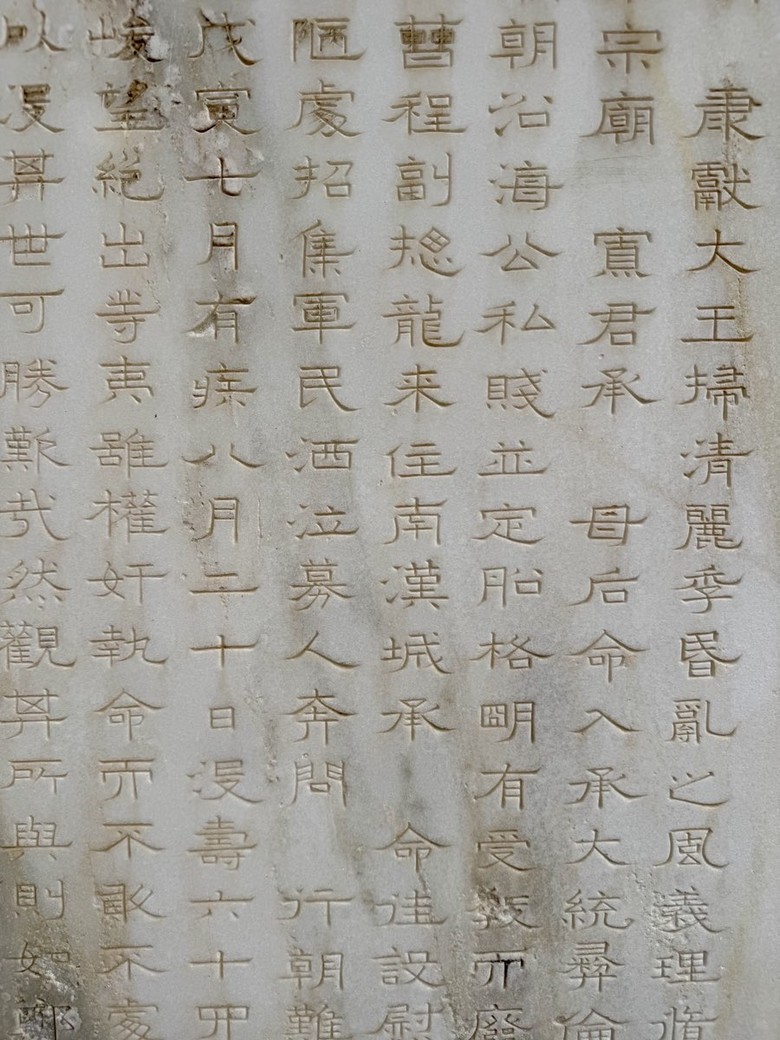 肅獻大王掃清麗季昏亂之風義理
宗廟 寘君承 母后命入承大統彛倫
朝沿海公私賤並定貽格明有受教而廢
曹程副摠龍来住南漢城承 命徃設慰
陋處招集軍民洒泣募人奔問 行朝難
戊寅七月有疾八月二十日浸壽六十四
峻望絶出等夷雖權奸執命而不敢不處
以浸其世可勝歎㢤然觀其所與則如